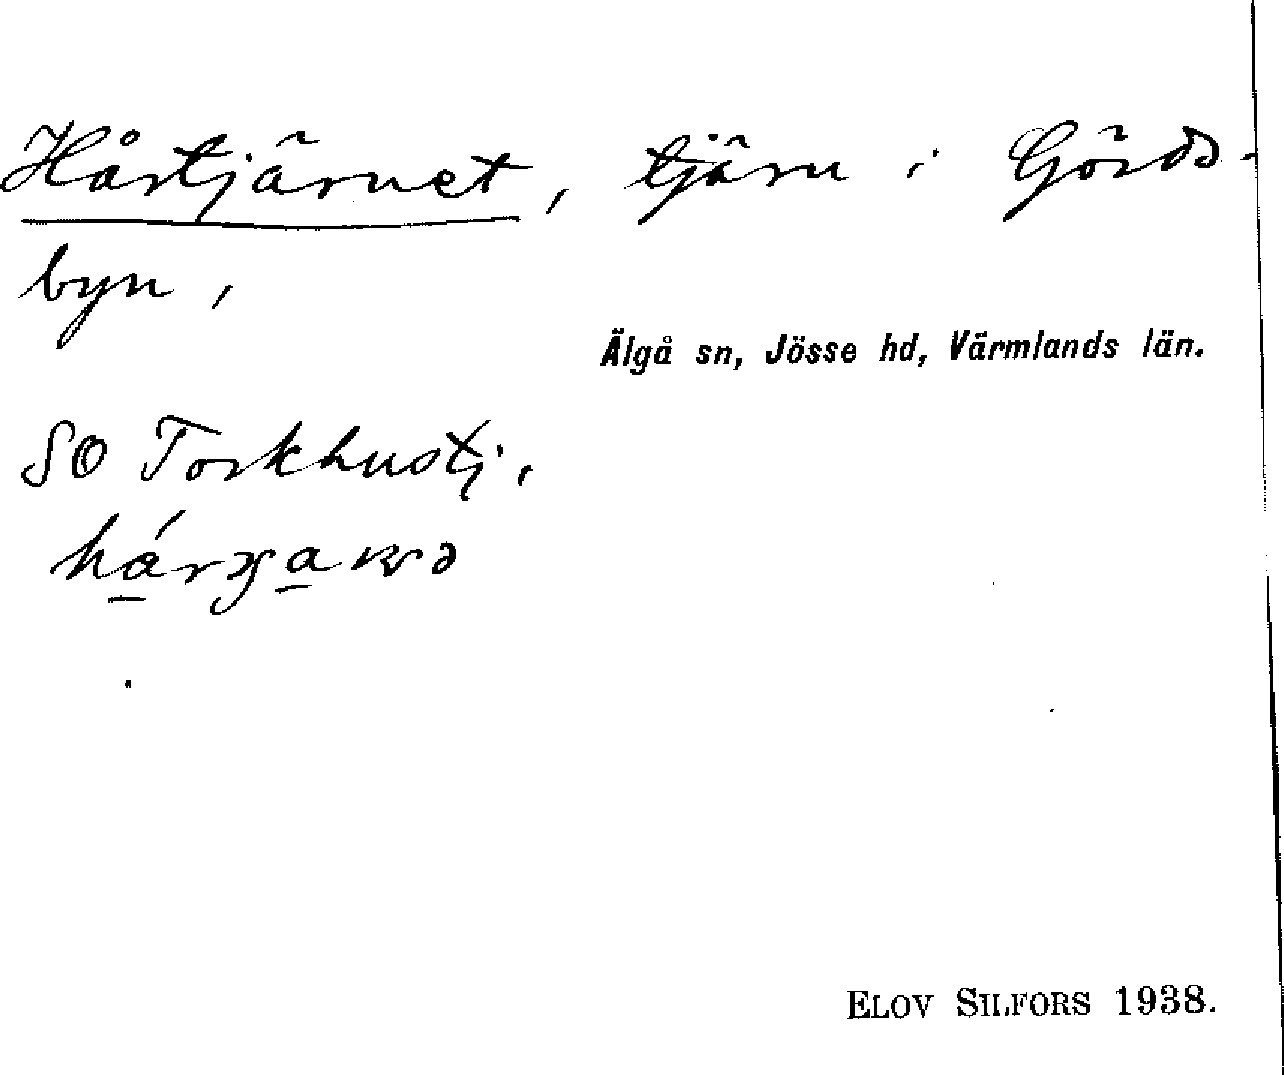 Hårtjärnet, tjärn i Görds-
byn,
Älgå sn, Jösse hd, Värmlands län.
SO Torkhustj.
ELOV SILFORS 1938.